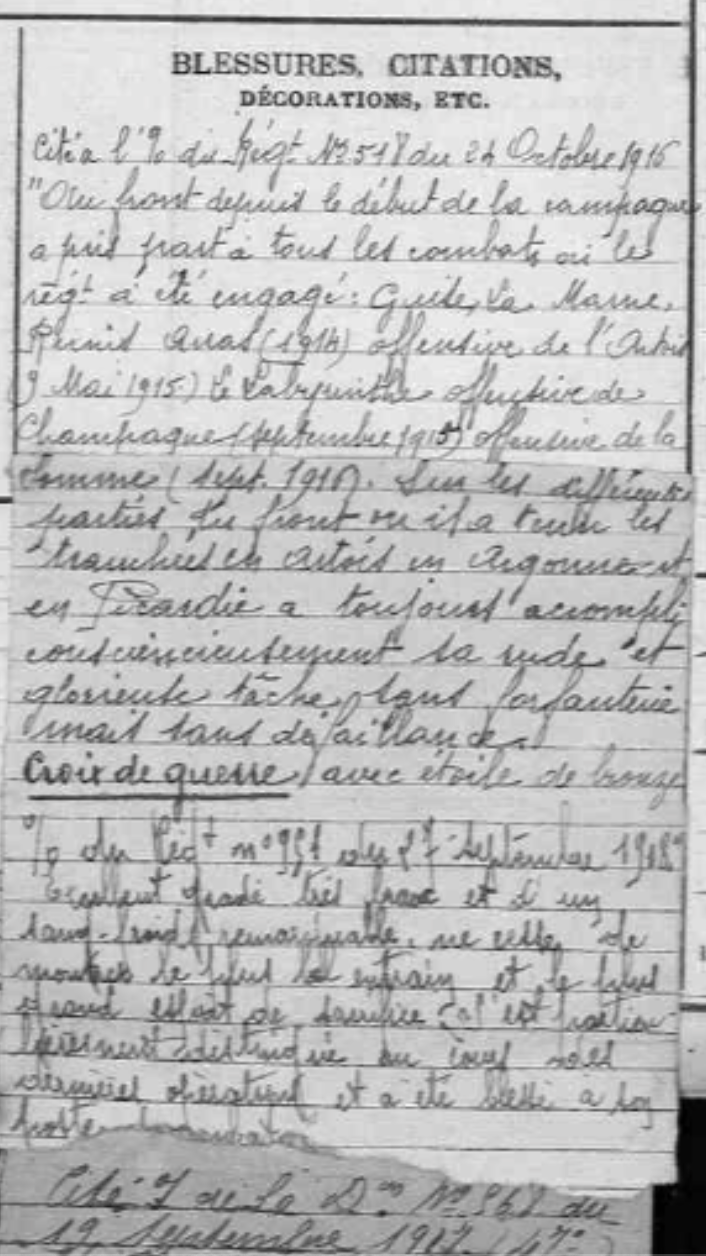 BLESSURES, CITATIONS,
DÉCORATIONS, ETC.
Cité à l'% du Régt No 518 du 24 Octobre 1916
"Au front depuis le début de la campagne
a pris part à tous les combats où le
régt a été engagé: Guise, La Marne,
Reims Arras (1914) offensive de l'Artois
9 Mai 1915) Le Labyrinthe offensive de
Champagne (septembre 1915) offensive de la
Somme (sept. 1916). Sur les différentes
parties du front où il a tenu les
tranchées en Artois en Argonne et
en Picardie a toujours accompli
consciencieusement sa rude et
glorieuse tâche, sans forfanterie
mais sans défaillance.
Croix de guerre avec étoile de bronze
% du Régt no 951 du 27 Septembre 1918"
Excellent gradé très brave et d'un
sang-froid remarquable, ne cesse de
montrer le plus bel entrain et le plus
grand esprit de sacrifice s'est particu-
lièrement distingué au cours des
dernières opérations et a été blessé à son
poste
Cité de la Don No 562 du
19 Septembre 1917